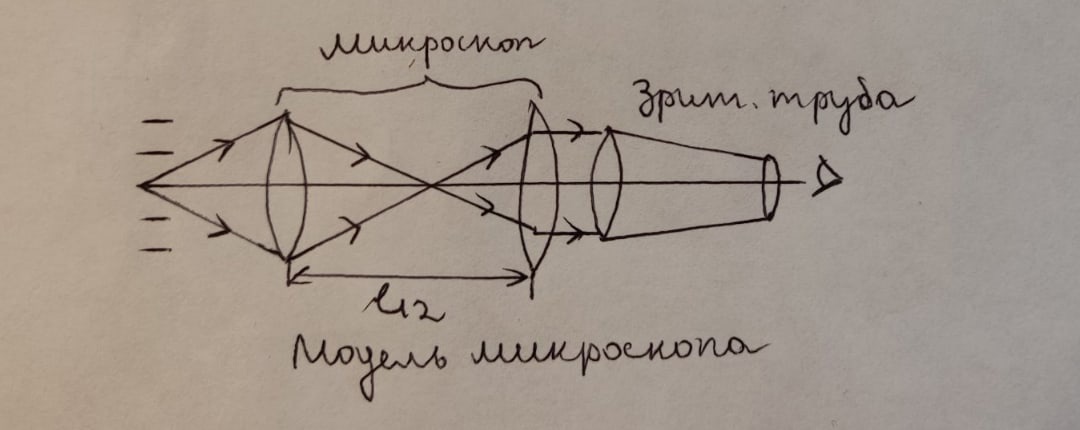 микроскоп
Зрит. труба
l12
Модель микроскопа